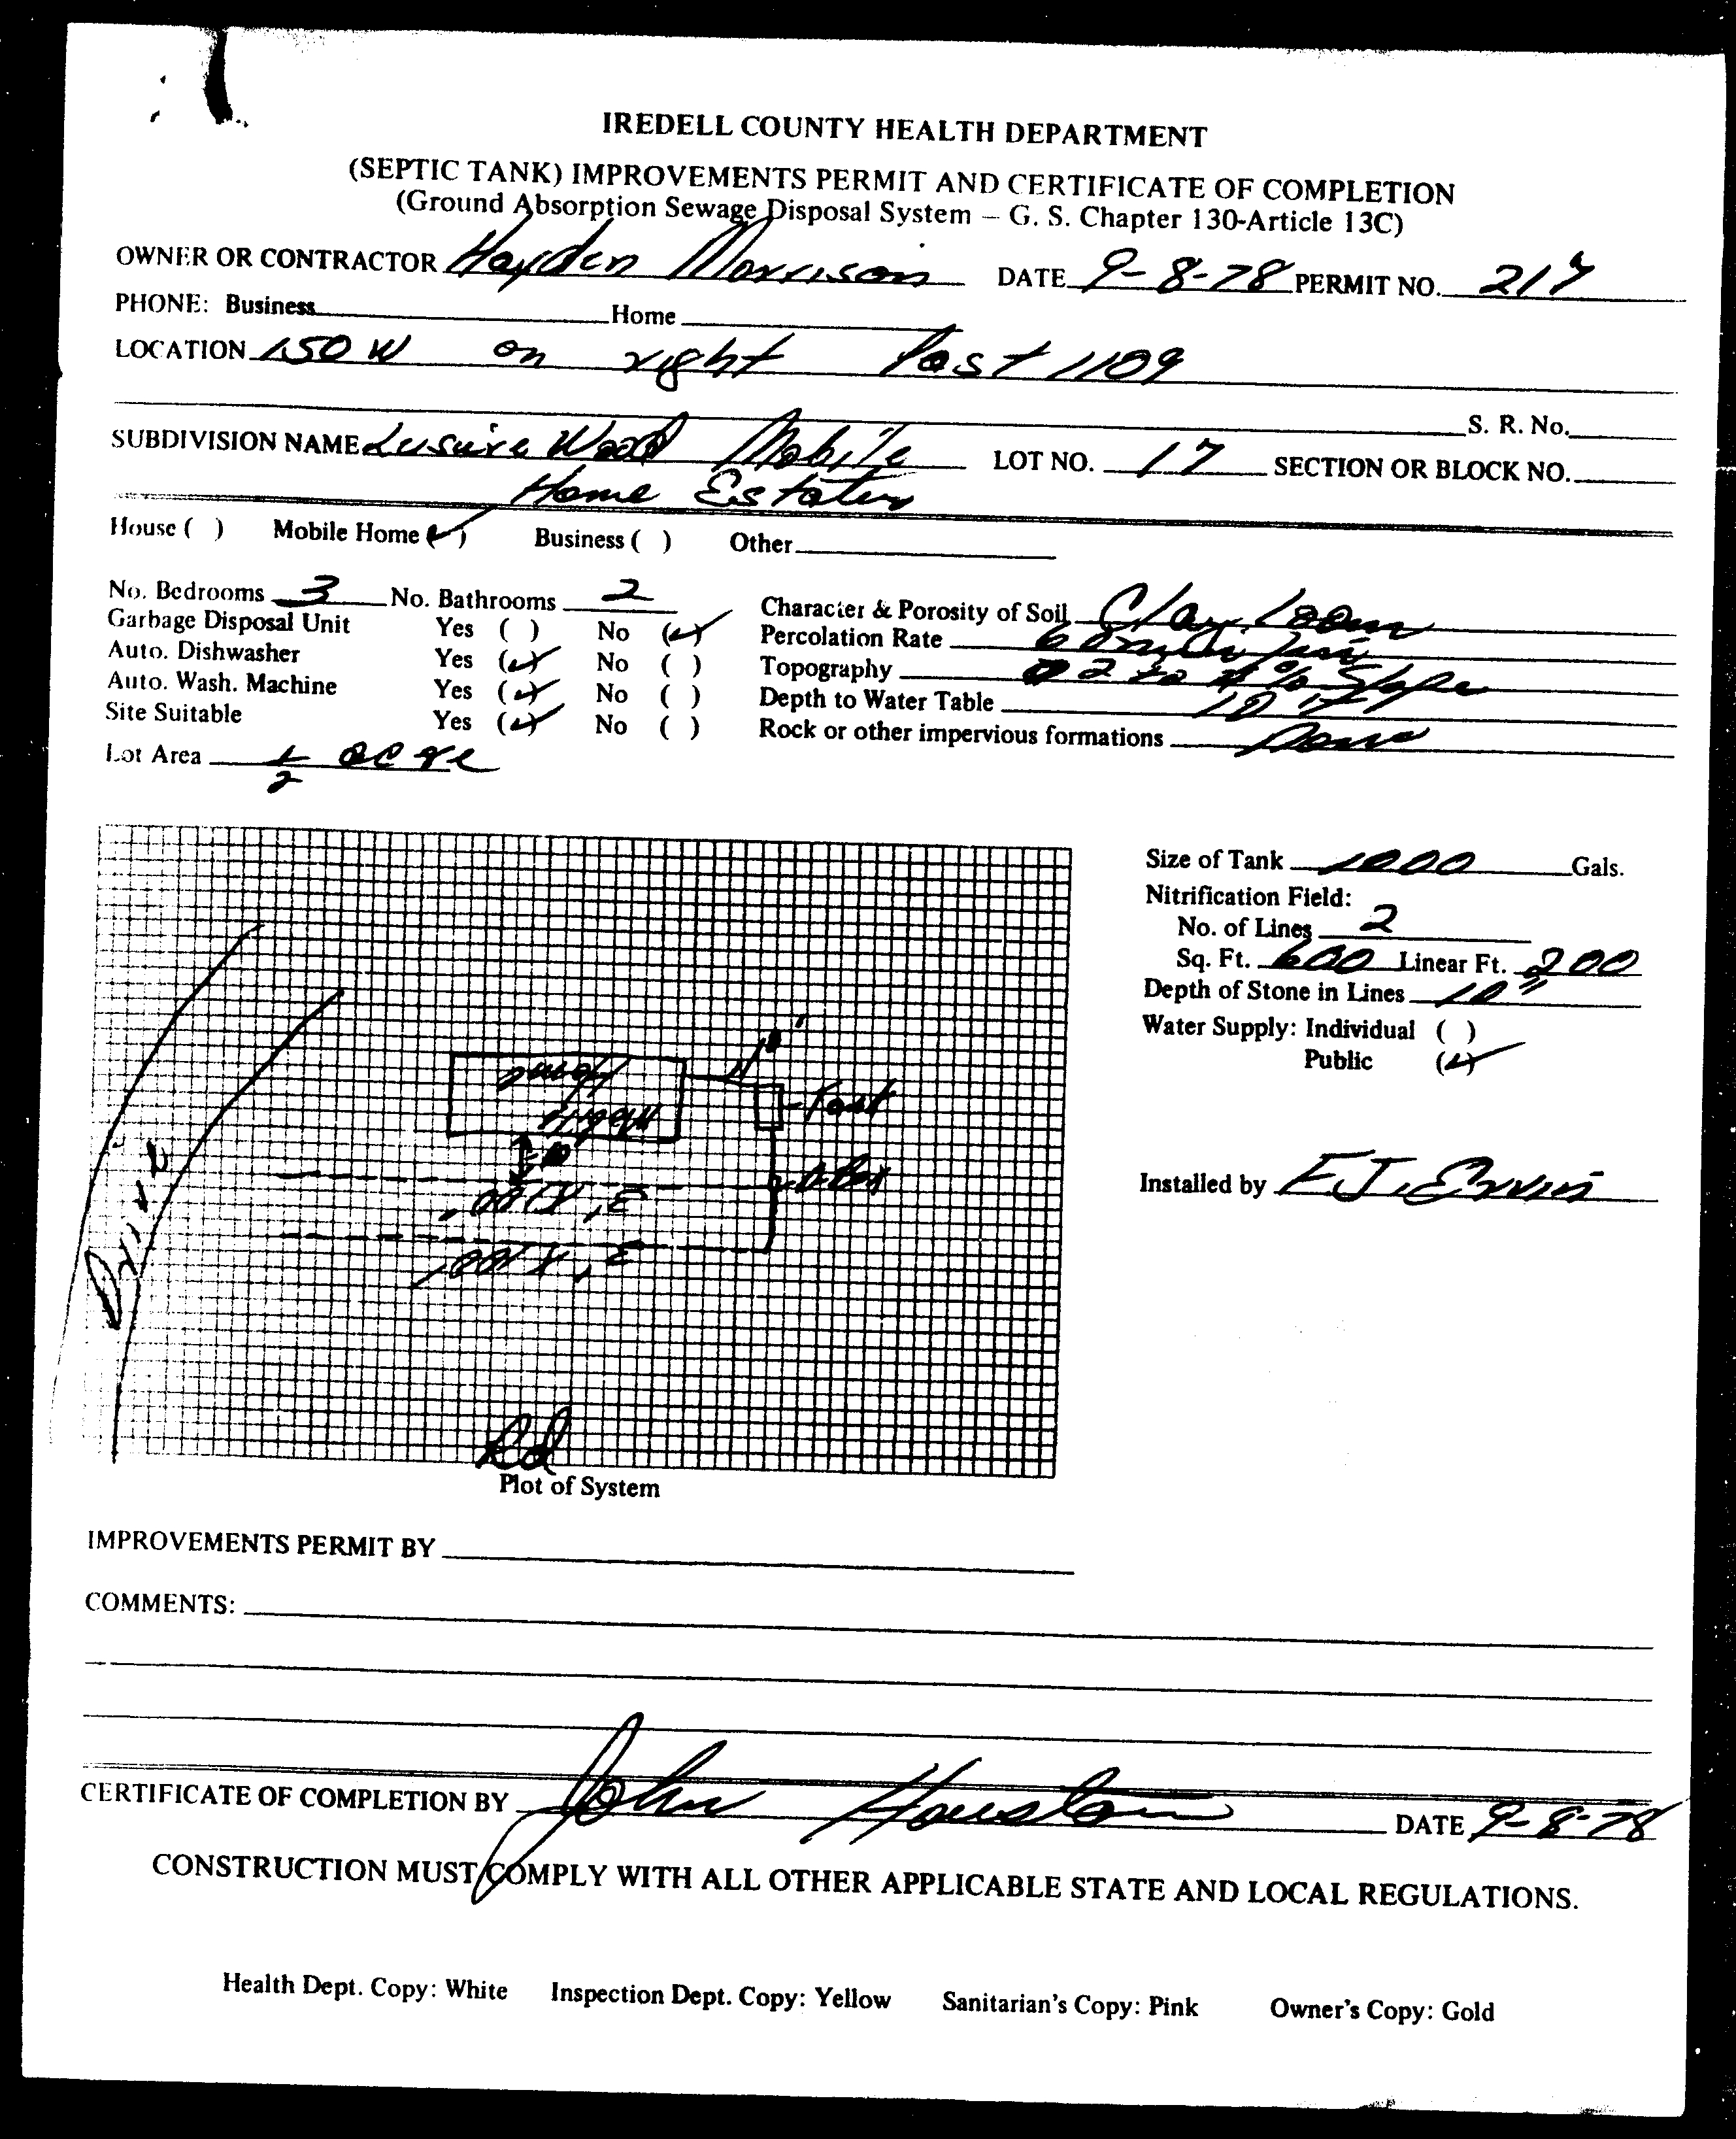 IREDELL COUNTY HEALTH DEPARTMENT
(SEPTIC TANK) IMPROVEMENTS PERMIT AND CERTIFICATE OF COMPLETION
(Ground Absorption Sewage Disposal System – G. S. Chapter 130-Article 13C)
OWNER OR CONTRACTOR Hayden Morrison DATE 9-8-78 PERMIT NO. 217
PHONE: Business Home
LOCATION 150 W on right Past 1109
S. R. No.
SUBDIVISION NAME Lusure Wood Mobile LOT NO. 17 SECTION OR BLOCK NO.
Home Estates
House ( ) Mobile Home (✓) Business ( ) Other
No. Bedrooms 3 No. Bathrooms 2 Character & Porosity of Soil Clay Loam
Garbage Disposal Unit Yes ( ) No (✓) Percolation Rate 60
Auto. Dishwasher Yes (✓) No ( ) Topography 2 to 4% Slope
Auto. Wash. Machine Yes (✓) No ( ) Depth to Water Table 10 ft
Site Suitable Yes (✓) No ( ) Rock or other impervious formations None
Lot Area 1/2 acre
Size of Tank 1000 Gals.
Nitrification Field:
No. of Lines 2
Sq. Ft. 600 Linear Ft. 200
Depth of Stone in Lines 10"
Water Supply: Individual ( )
Public (✓)
Installed by F.J. Ervin
Mobile
Home
3' X 100'
3' X 100'
Drive
Rd
Plot of System
IMPROVEMENTS PERMIT BY
COMMENTS:
CERTIFICATE OF COMPLETION BY John Houston DATE 9-8-78
CONSTRUCTION MUST COMPLY WITH ALL OTHER APPLICABLE STATE AND LOCAL REGULATIONS.
Health Dept. Copy: White Inspection Dept. Copy: Yellow Sanitarian's Copy: Pink Owner's Copy: Gold